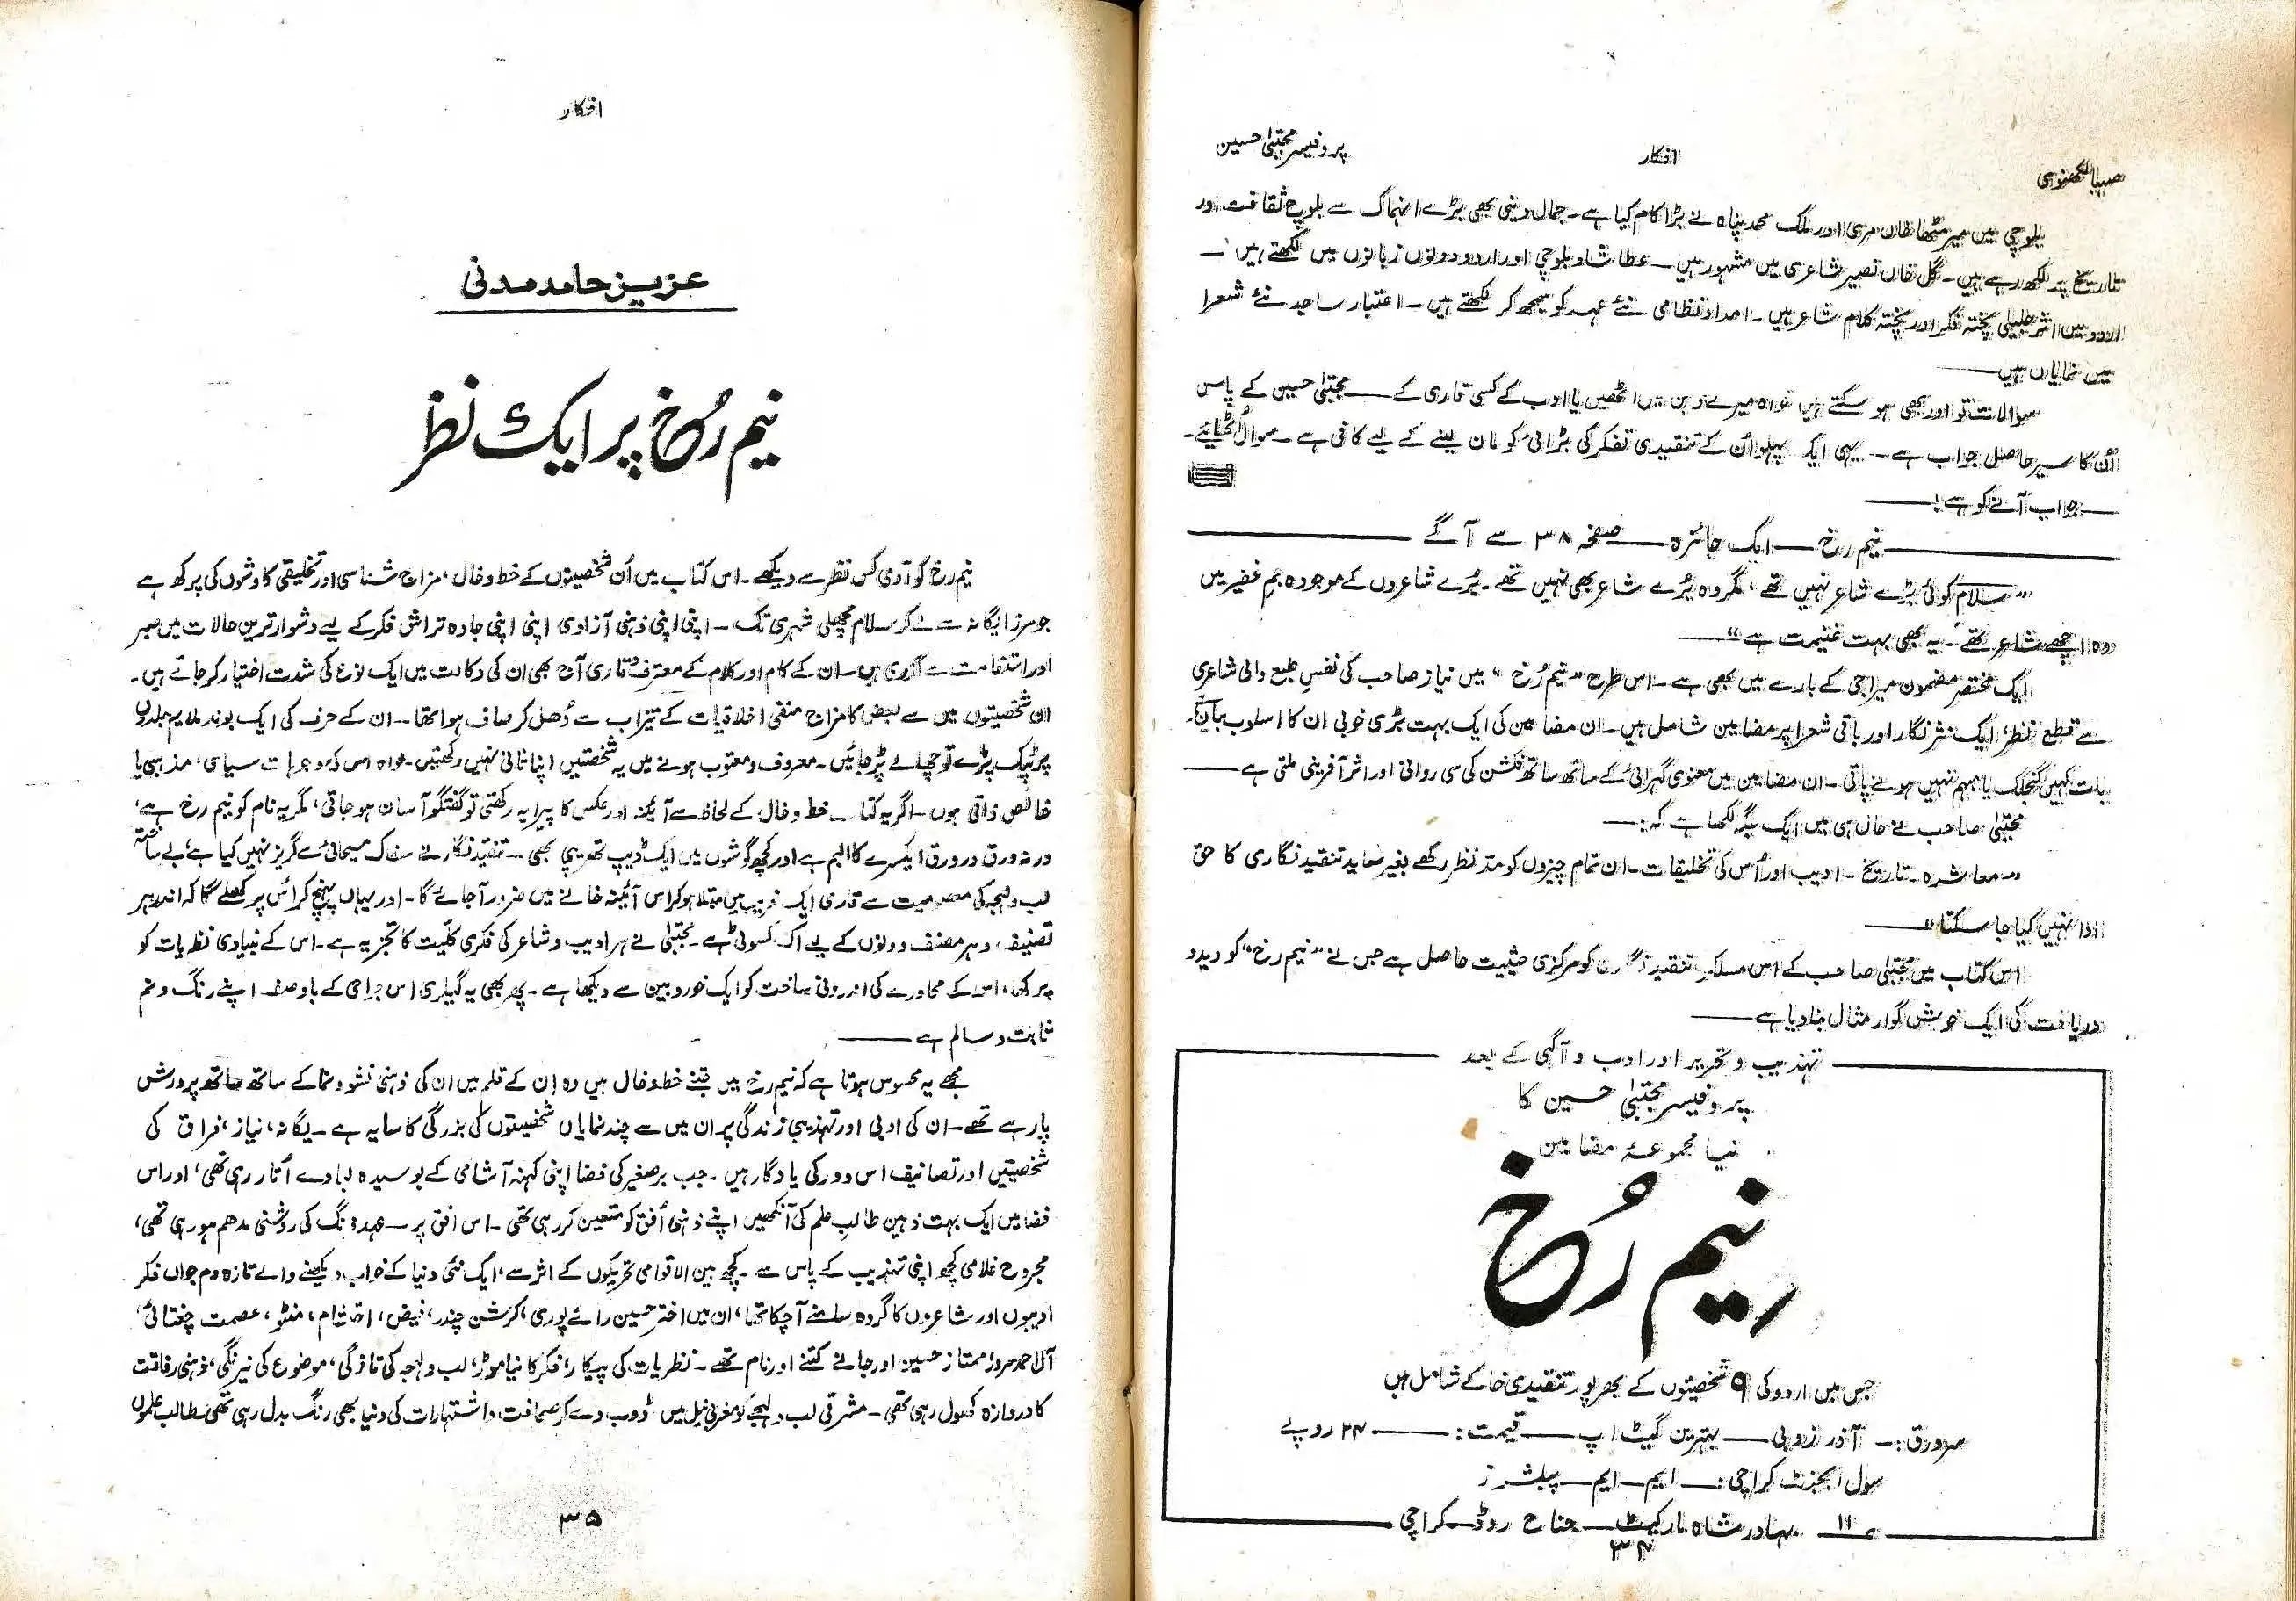 صہبا لکھنوی
افکار
پروفیسر مجتبیٰ حسین
بلوچی میں میر مٹھا خاں مری اور ملک محمد پناہ نے بڑا کام کیا ہے۔ جمال دینی بھی بڑے انہماک سے بلوچ ثقافت اور
تاریخ پر لکھ رہے ہیں۔ گل خاں نصیر شاعری میں مشہور ہیں۔ عطا شاد بلوچی اور اردو دونوں زبانوں میں لکھتے ہیں۔
اردو میں اثر جلیلی پختہ فکر اور پختہ کلام شاعر ہیں۔ امداد نظامی نئے عہد کو سمجھ کر لکھتے ہیں۔ اعتبار ساجد نئے شعرا
میں نمایاں ہیں——
سوالات تو اور بھی ہو سکتے ہیں خواہ میرے ذہن میں اٹھیں یا ادب کے کسی قاری کے —— مجتبیٰ حسین کے پاس
اُن کا سیر حاصل جواب ہے۔ یہی ایک پہلو اُن کے تنقیدی تفکر کی بڑائی کو مان لینے کے لیے کافی ہے۔ سوال اُٹھایئے۔
—— جواب آنے کو ہے!——
نیم رخ —— ایک جائزہ —— صفحہ ۳۸ سے آگے
"سلام کوئی بڑے شاعر نہیں تھے، مگر وہ بُرے شاعر بھی نہیں تھے۔ بُرے شاعروں کے موجودہ جمِ غفیر میں
وہ اچھے شاعر تھے۔ یہ بھی بہت غنیمت ہے"——
ایک مختصر مضمون میراجی کے بارے میں بھی ہے۔ اس طرح "نیم رُخ" میں نیاز صاحب کی نفسِ طبع والی شاعری
سے قطع نظر، ایک نثر نگار اور باقی شعرا پر مضامین شامل ہیں۔ ان مضامین کی ایک بہت بڑی خوبی ان کا اسلوب بیان ہے۔
بات کہیں گنجلک یا مبہم نہیں ہونے پاتی۔ ان مضامین میں معنوی گہرائی کے ساتھ ساتھ فکشن کی سی روانی اور اثر آفرینی ملتی ہے——
مجتبیٰ صاحب نے حال ہی میں ایک جگہ لکھا ہے کہ:——
"معاشرہ۔ تاریخ۔ ادیب اور اُس کی تخلیقات۔ ان تمام چیزوں کو مدّنظر رکھے بغیر شاید تنقید نگاری کا حق
ادا نہیں کیا جا سکتا"——
اس کتاب میں مجتبیٰ صاحب کے اس مسلکِ تنقید نگاری کو مرکزی حیثیت حاصل ہے جس نے "نیم رخ" کو دید و
دریافت کی ایک خوش گوار مثال بنا دیا ہے——
تہذیب و تحریر اور ادب و آگہی کے بعد
پروفیسر مجتبیٰ حسین کا
نیا مجموعۂ مضامین
نیم رُخ
جس میں اردو کی ۹ شخصیتوں کے بھرپور تنقیدی خاکے شامل ہیں
سرورق:۔ آذر زوبی —— بہترین گیٹ اپ —— قیمت: —— ۲۴ روپے
سول ایجنٹ کراچی: —— ایم —— ایم —— پبلشرز
۱۱ —— بہادر شاہ مارکیٹ —— جناح روڈ —— کراچی
۳۴
افکار
عزیز حامد مدنی
نیم رُخ پر ایک نظر
نیم رخ کو آدمی کس نظر سے دیکھے۔ اس کتاب میں اُن شخصیتوں کے خط و خال، مزاج شناسی اور تخلیقی کاوشوں کی پرکھ ہے
جو مرزا یگانہ سے لے کر سلام مچھلی شہری تک۔ اپنی اپنی ذہنی آزادی اپنی اپنی جادہ تراش فکر کے لیے دشوار ترین حالات میں صبر
اور استقامت سے گزری ہیں۔ ان کے کام اور کلام کے معترف قاری آج بھی ان کی وکالت میں ایک نوع کی شدت اختیار کر جاتے ہیں۔
ان شخصیتوں میں سے بعض کا مزاج منفی اخلاقیات کے تیزاب سے دُھل کر صاف ہوا تھا۔ ان کے حرف کی ایک بوند ملایم جلدوں
پر ٹپک پڑے تو چھالے پڑ جائیں۔ معروف و معتوب ہونے میں یہ شخصیتیں اپنا ثانی نہیں رکھتیں۔ خواہ اس کی وجوہات سیاسی، مذہبی یا
خالص ذاتی ہوں۔ اگر یہ کتاب خط و خال کے لحاظ سے آئینہ اور عکس کا پیرایہ رکھتی تو گفتگو آسان ہو جاتی، مگر یہ نام کو نیم رخ ہے،
ورنہ ورق در ورق ایکسرے کا البم ہے اور کچھ گوشوں میں ایک ڈیپ تھریپی بھی۔ تنقید نگار نے سفاک مسیحائی سے گریز نہیں کیا ہے، بے ساختہ
لب و لہجہ کی معصومیت سے قاری ایک فریب میں مبتلا ہو کر اس آئینہ خانے میں ضرور آ جائے گا۔ اور یہاں پہنچ کر اُس پر کھلے گا کہ اندر ہر
تصنیف و ہر مصنف دونوں کے لیے اک کسوٹی ہے۔ مجتبیٰ نے ہر ادیب و شاعر کی فکری کلیّت کا تجزیہ ہے۔ اس کے بنیادی نظریات کو
پرکھا، اس کے محاورے کی اندرونی ساخت کو ایک خوردبین سے دیکھا ہے۔ پھر بھی یہ گیلری اس جراحی کے باوصف اپنے رنگ و نم
ثابت و سالم ہے——
مجھے یہ محسوس ہوتا ہے کہ نیم رخ میں جتنے خط و خال ہیں وہ اِن کے قلم میں ان کی ذہنی نشوونما کے ساتھ ساتھ پرورش
پا رہے تھے۔ ان کی ادبی اور تہذیبی زندگی پر ان میں سے چند نمایاں شخصیتوں کی بزرگی کا سایہ ہے۔ یگانہ، نیاز، فراق کی
شخصیتیں اور تصانیف اس دور کی یادگار ہیں۔ جب برصغیر کی فضا اپنی کہنہ آشامی کے بوسیدہ لبادے اُتار رہی تھی، اور اس
فضا میں ایک بہت ذہین طالب علم کی آنکھیں اپنے ذہنی اُفق کو متعین کر رہی تھی۔ اس افق پر —— عہدِ فرنگ کی روشنی مدھم ہو رہی تھی،
مجروح غلامی کچھ اپنی تہذیب کے پاس سے۔ کچھ بین الاقوامی تحریکوں کے اثر سے، ایک نئی دنیا کے خواب دیکھنے والے تازہ دم جواں فکر
ادیبوں اور شاعروں کا گروہ سامنے آ چکا تھا، ان میں اختر حسین رائے پوری، کرشن چندر، فیض، احتشام، منٹو، عصمت چغتائی،
آل احمد سرور، ممتاز حسین اور جانے کتنے اور نام تھے۔ نظریات کی پیکار، فکر کا نیا موڑ، لب و لہجہ کی تازگی، موضوع کی نیرنگی، ذہنی رفاقت
کا دروازہ کھول رہی تھی۔ مشرقی لب و لہجے کو مغربی نیل میں ڈوب دے کر صحافت و اشتہارات کی دنیا بھی رنگ بدل رہی تھی۔ طالب علموں
۳۵